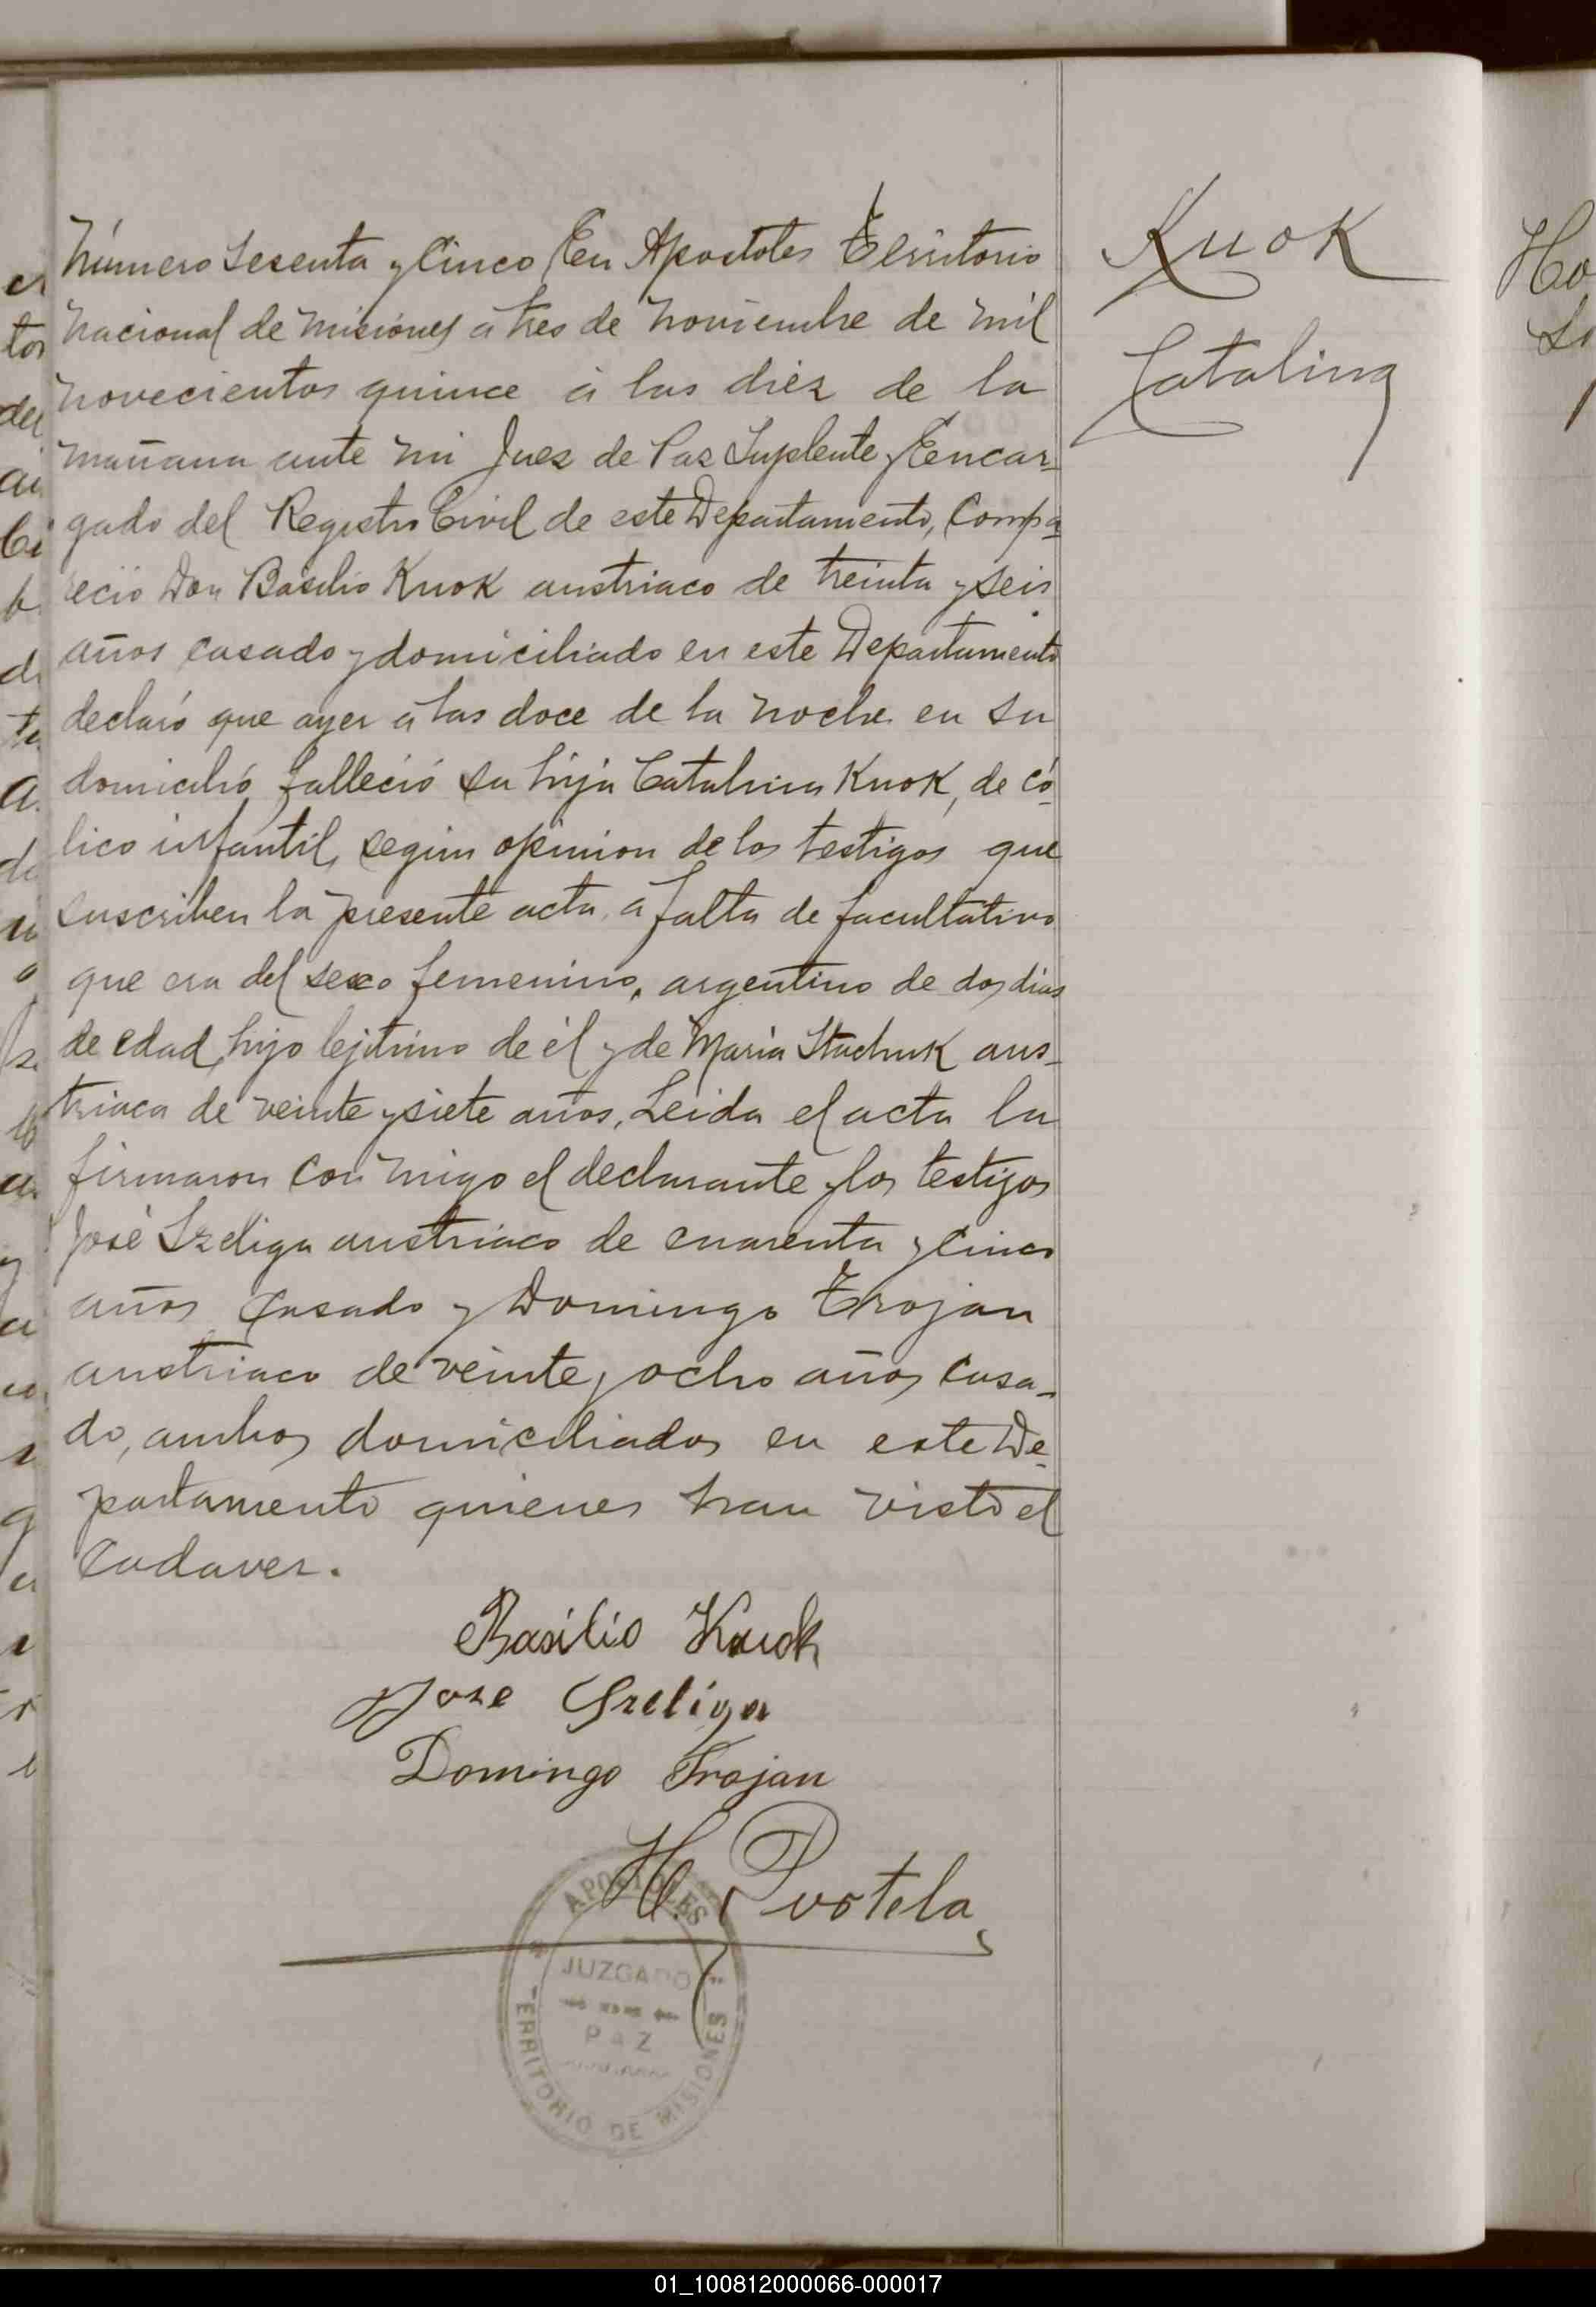 Número Sesenta y Cinco En Apostoles Territorio
nacional de Misiones á tres de noviembre de mil
novecientos quince á las diez de la
mañana ante mi Juez de Paz Suplente y Encar-
gado del Registro Civil de este Departamento, Compa-
reció Don Basilio Knok austriaco de treinta y seis
años casado y domiciliado en este Departamento
declaró que ayer á las doce de la noche en su
domicilio falleció su hija Catalina Knok, de có-
lico infantil, segun opinion de los testigos que
suscriben la presente acta, á falta de facultativo
que era del sexo femenino, argentino de dos dias
de edad, hijo lejitimo de él y de Maria Stachuk aus-
triaca de veinte y siete años, Leida el acta la
firmaron con migo el declarante y los testigos
José Szeliga austriaco de cuarenta y cinco
años casado y Domingo Trojan
austriaco de veinte y ocho años casa-
do, ambos domiciliados en este De-
partamento quienes han visto el
Cadaver.
Basilio Knok
Jose Szeliga
Domingo Trojan
H. Portela
APOSTOLES
JUZGADO
PAZ
TERRITORIO DE MISIONES
Knok
Catalina
01_100812000066-000017